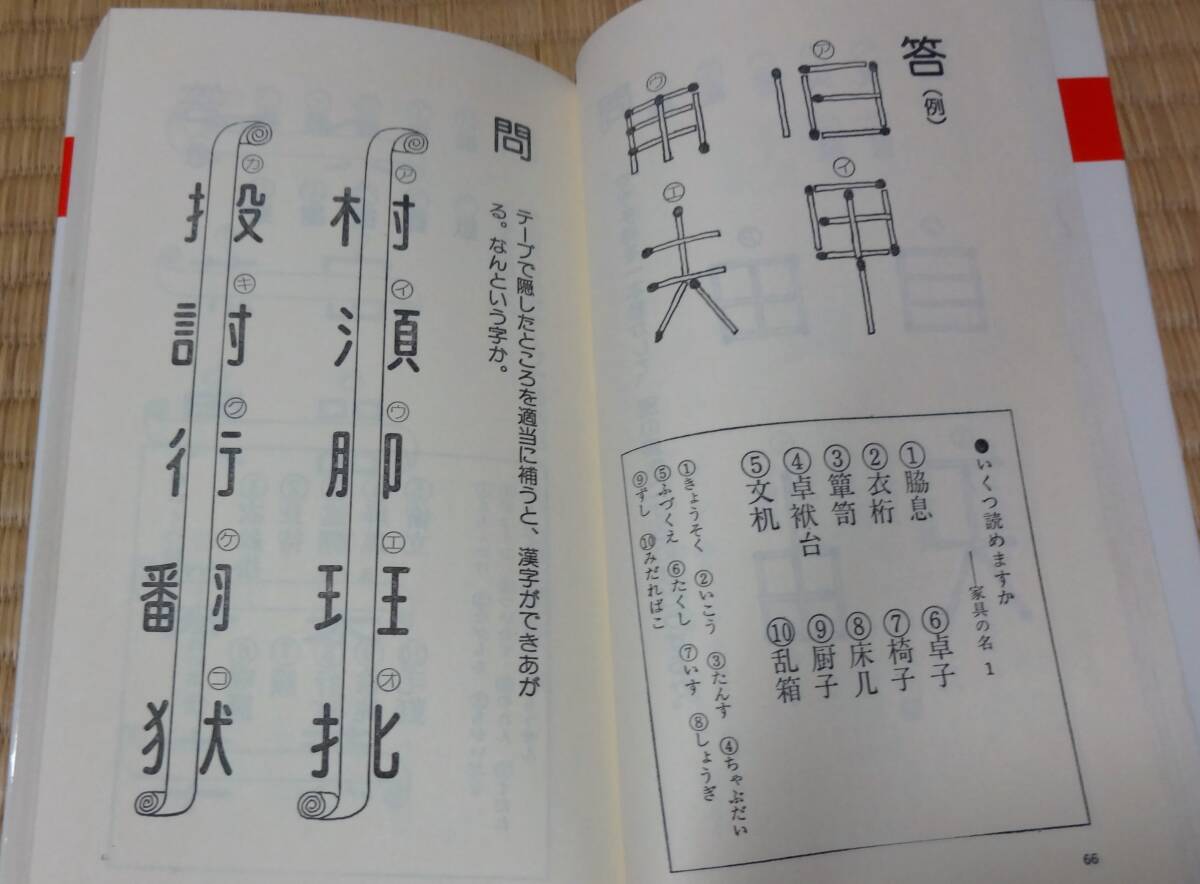 答（例）
㋐
旧
㋑
甲
㋒
㋓
夫
●いくつ読めますか
──家具の名 1
①脇息
②衣桁
③簞笥
④卓袱台
⑤文机
⑥卓子
⑦椅子
⑧床几
⑨厨子
⑩乱箱
①きょうそく ②いこう ③たんす ④ちゃぶだい
⑤ふづくえ ⑥たくし ⑦いす ⑧しょうぎ
⑨ずし ⑩みだればこ
66
問
テープで隠したところを適当に補うと、漢字ができあが
る。なんという字か。
㋐
木寸
㋑
氵頁
㋒
月卩
㋓
㋔
扌比
㋕
扌殳
㋖
言寸
㋗
行
㋘
番羽
㋙
犭犬